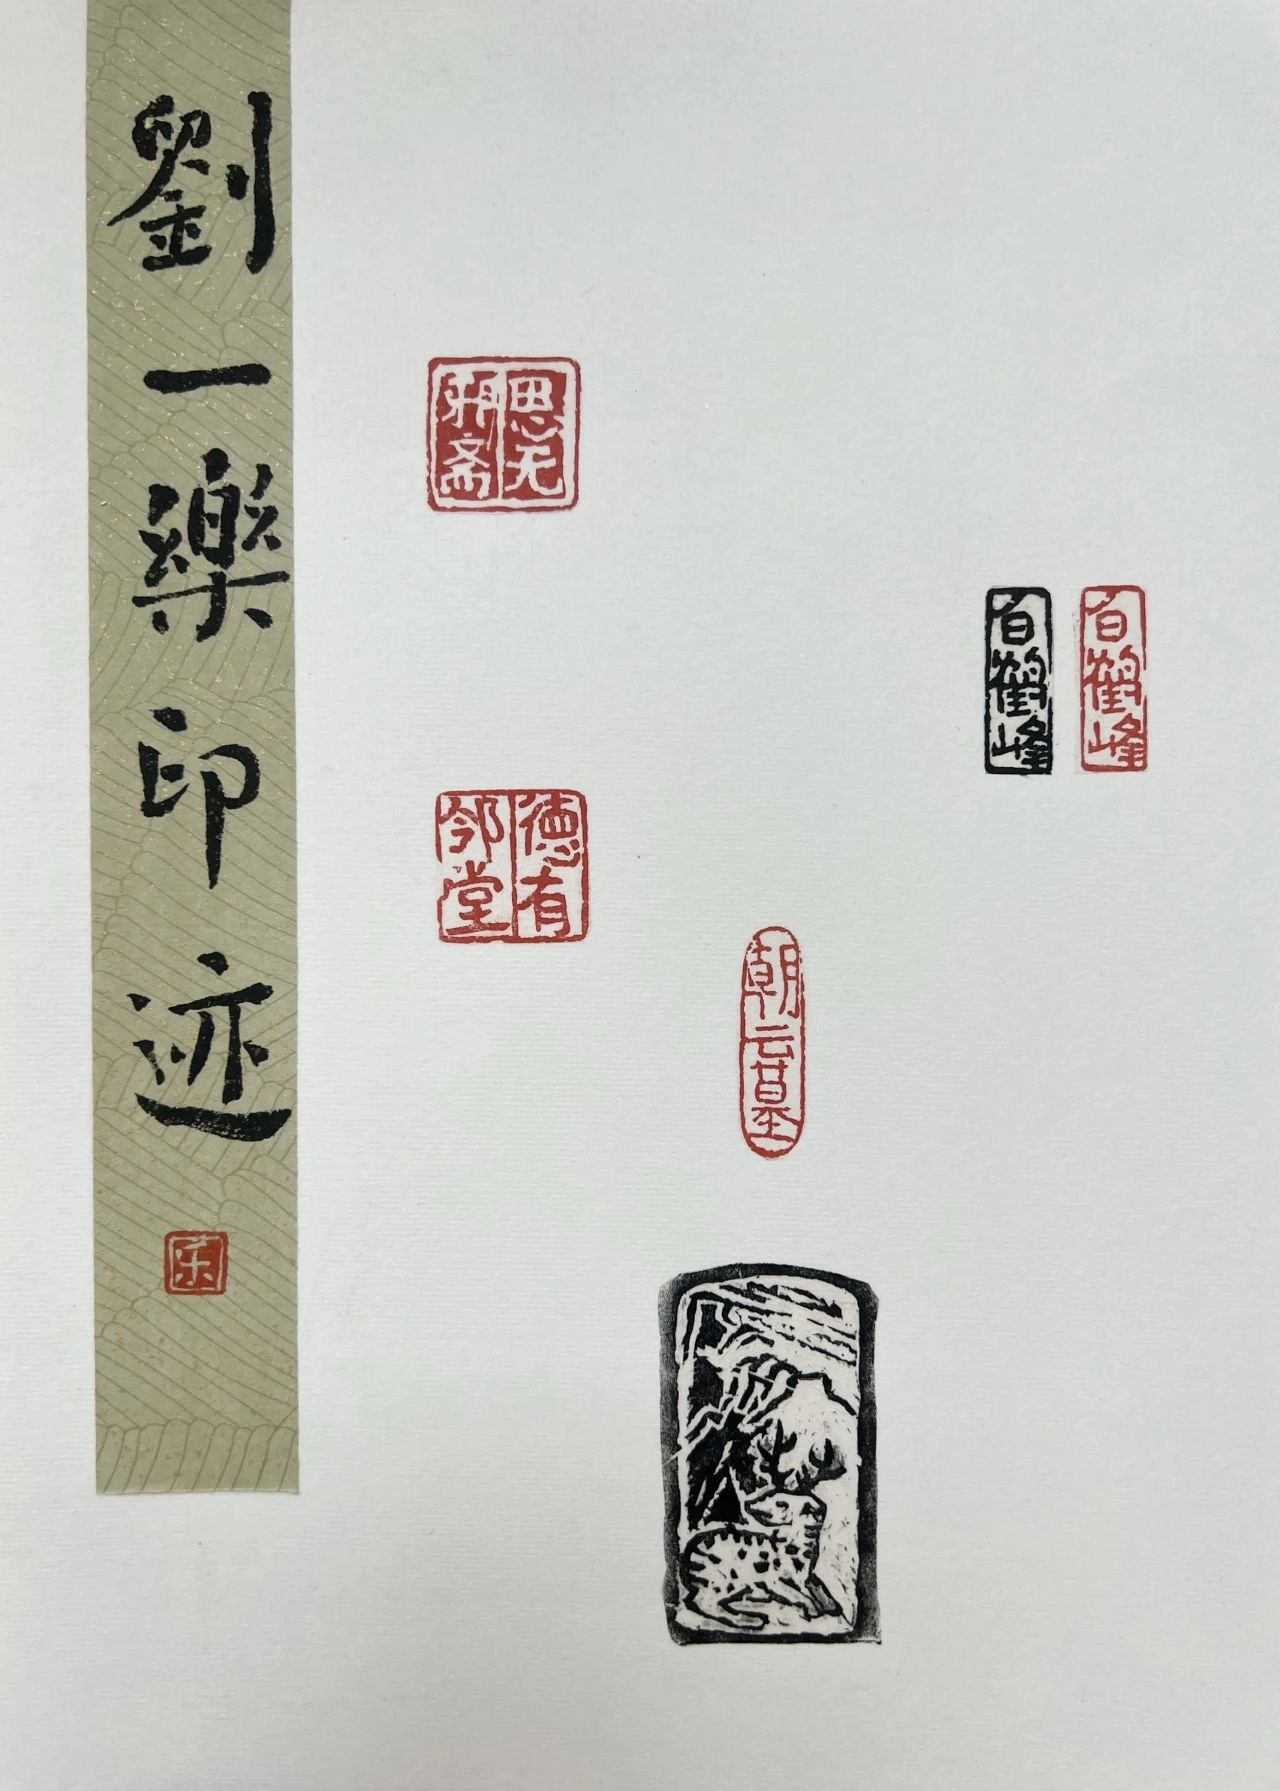 劉一樂印迹
乐
思无
邪斋
德有
邻堂
朝云墓
白鹤峰
白鹤峰